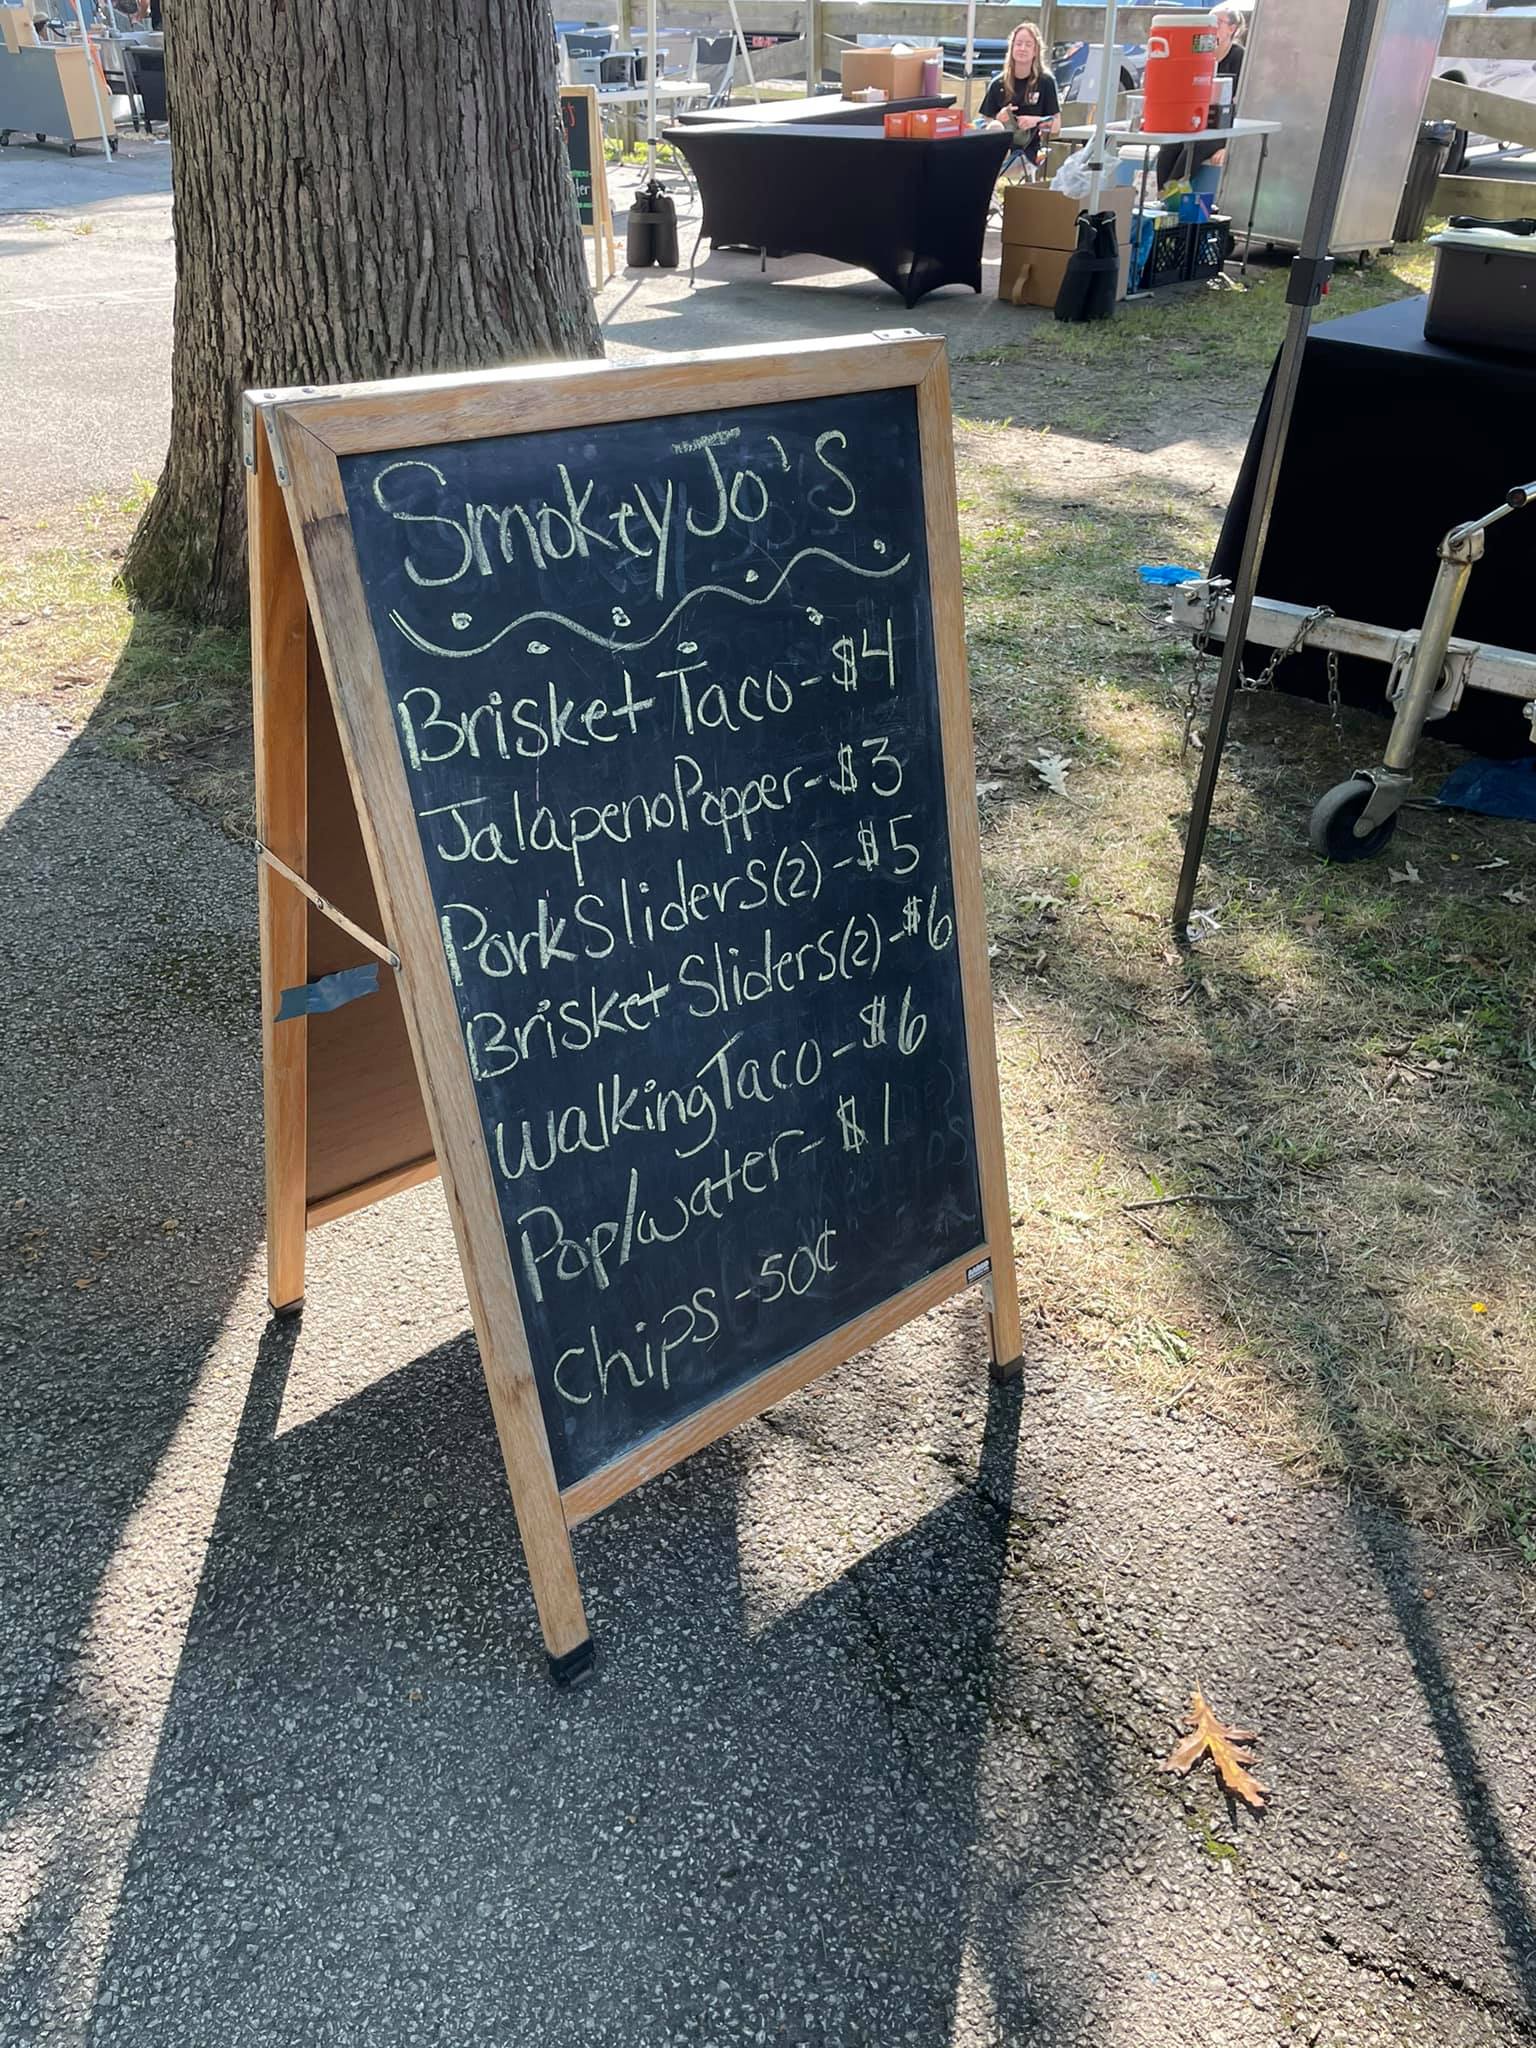 Smokey Jo's
Brisket Taco - $4
Jalapeno Popper - $3
Pork Sliders (2) - $5
Brisket Sliders (2) - $6
Walking Taco - $6
Pop/water - $1
Chips - 50¢